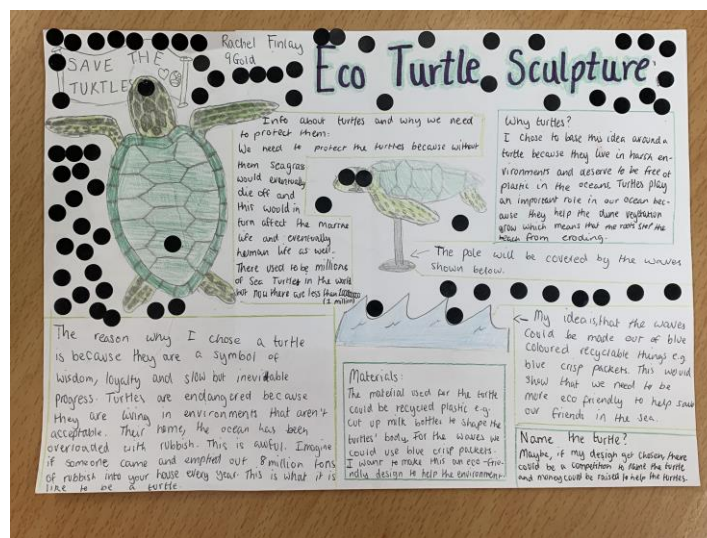 SAVE THE
TURTLE
Rachel Finlay
9Gold
Eco Turtle Sculpture
Info about turtles and why we need
to protect them:
We need to protect the turtles because without
them seagrass
would eventually
die off and
this would in
turn affect the marine
life and eventually
human life as well.
There used to be millions
of Sea Turtles in the world
but now there are less than
(1 million)
Why turtles?
I chose to base this idea around a
turtle because they live in harsh en-
vironments and deserve to be free of
plastic in the oceans. Turtles play
an important role in our ocean bec-
ause they help the dune vegetation
grow which means that the roots stop the
beach from eroding.
The pole will be covered by the waves
shown below.
The reason why I chose a turtle
is because they are a symbol of
wisdom, loyalty and slow but inevitable
progress. Turtles are endangered because
they are living in environments that aren't
acceptable. Their home, the ocean has been
overloaded with rubbish. This is awful. Imagine
if someone came and emptied out 8 million tons
of rubbish into your house every year. This is what it is
like to be a turtle.
Materials:
The material used for the turtle
could be recycled plastic e.g.
cut up milk bottles to shape the
turtles' body. For the waves we
could use blue crisp packets.
I want to make this an eco-frie-
ndly design to help the environment.
My idea is, that the waves
could be made out of blue
coloured recyclable things e.g
blue crisp packets. This would
show that we need to be
more eco friendly to help save
our friends in the sea.
Name the turtle?
Maybe, if my design got chosen, there
could be a competition to name the turtle
and money could be raised to help the turtles.